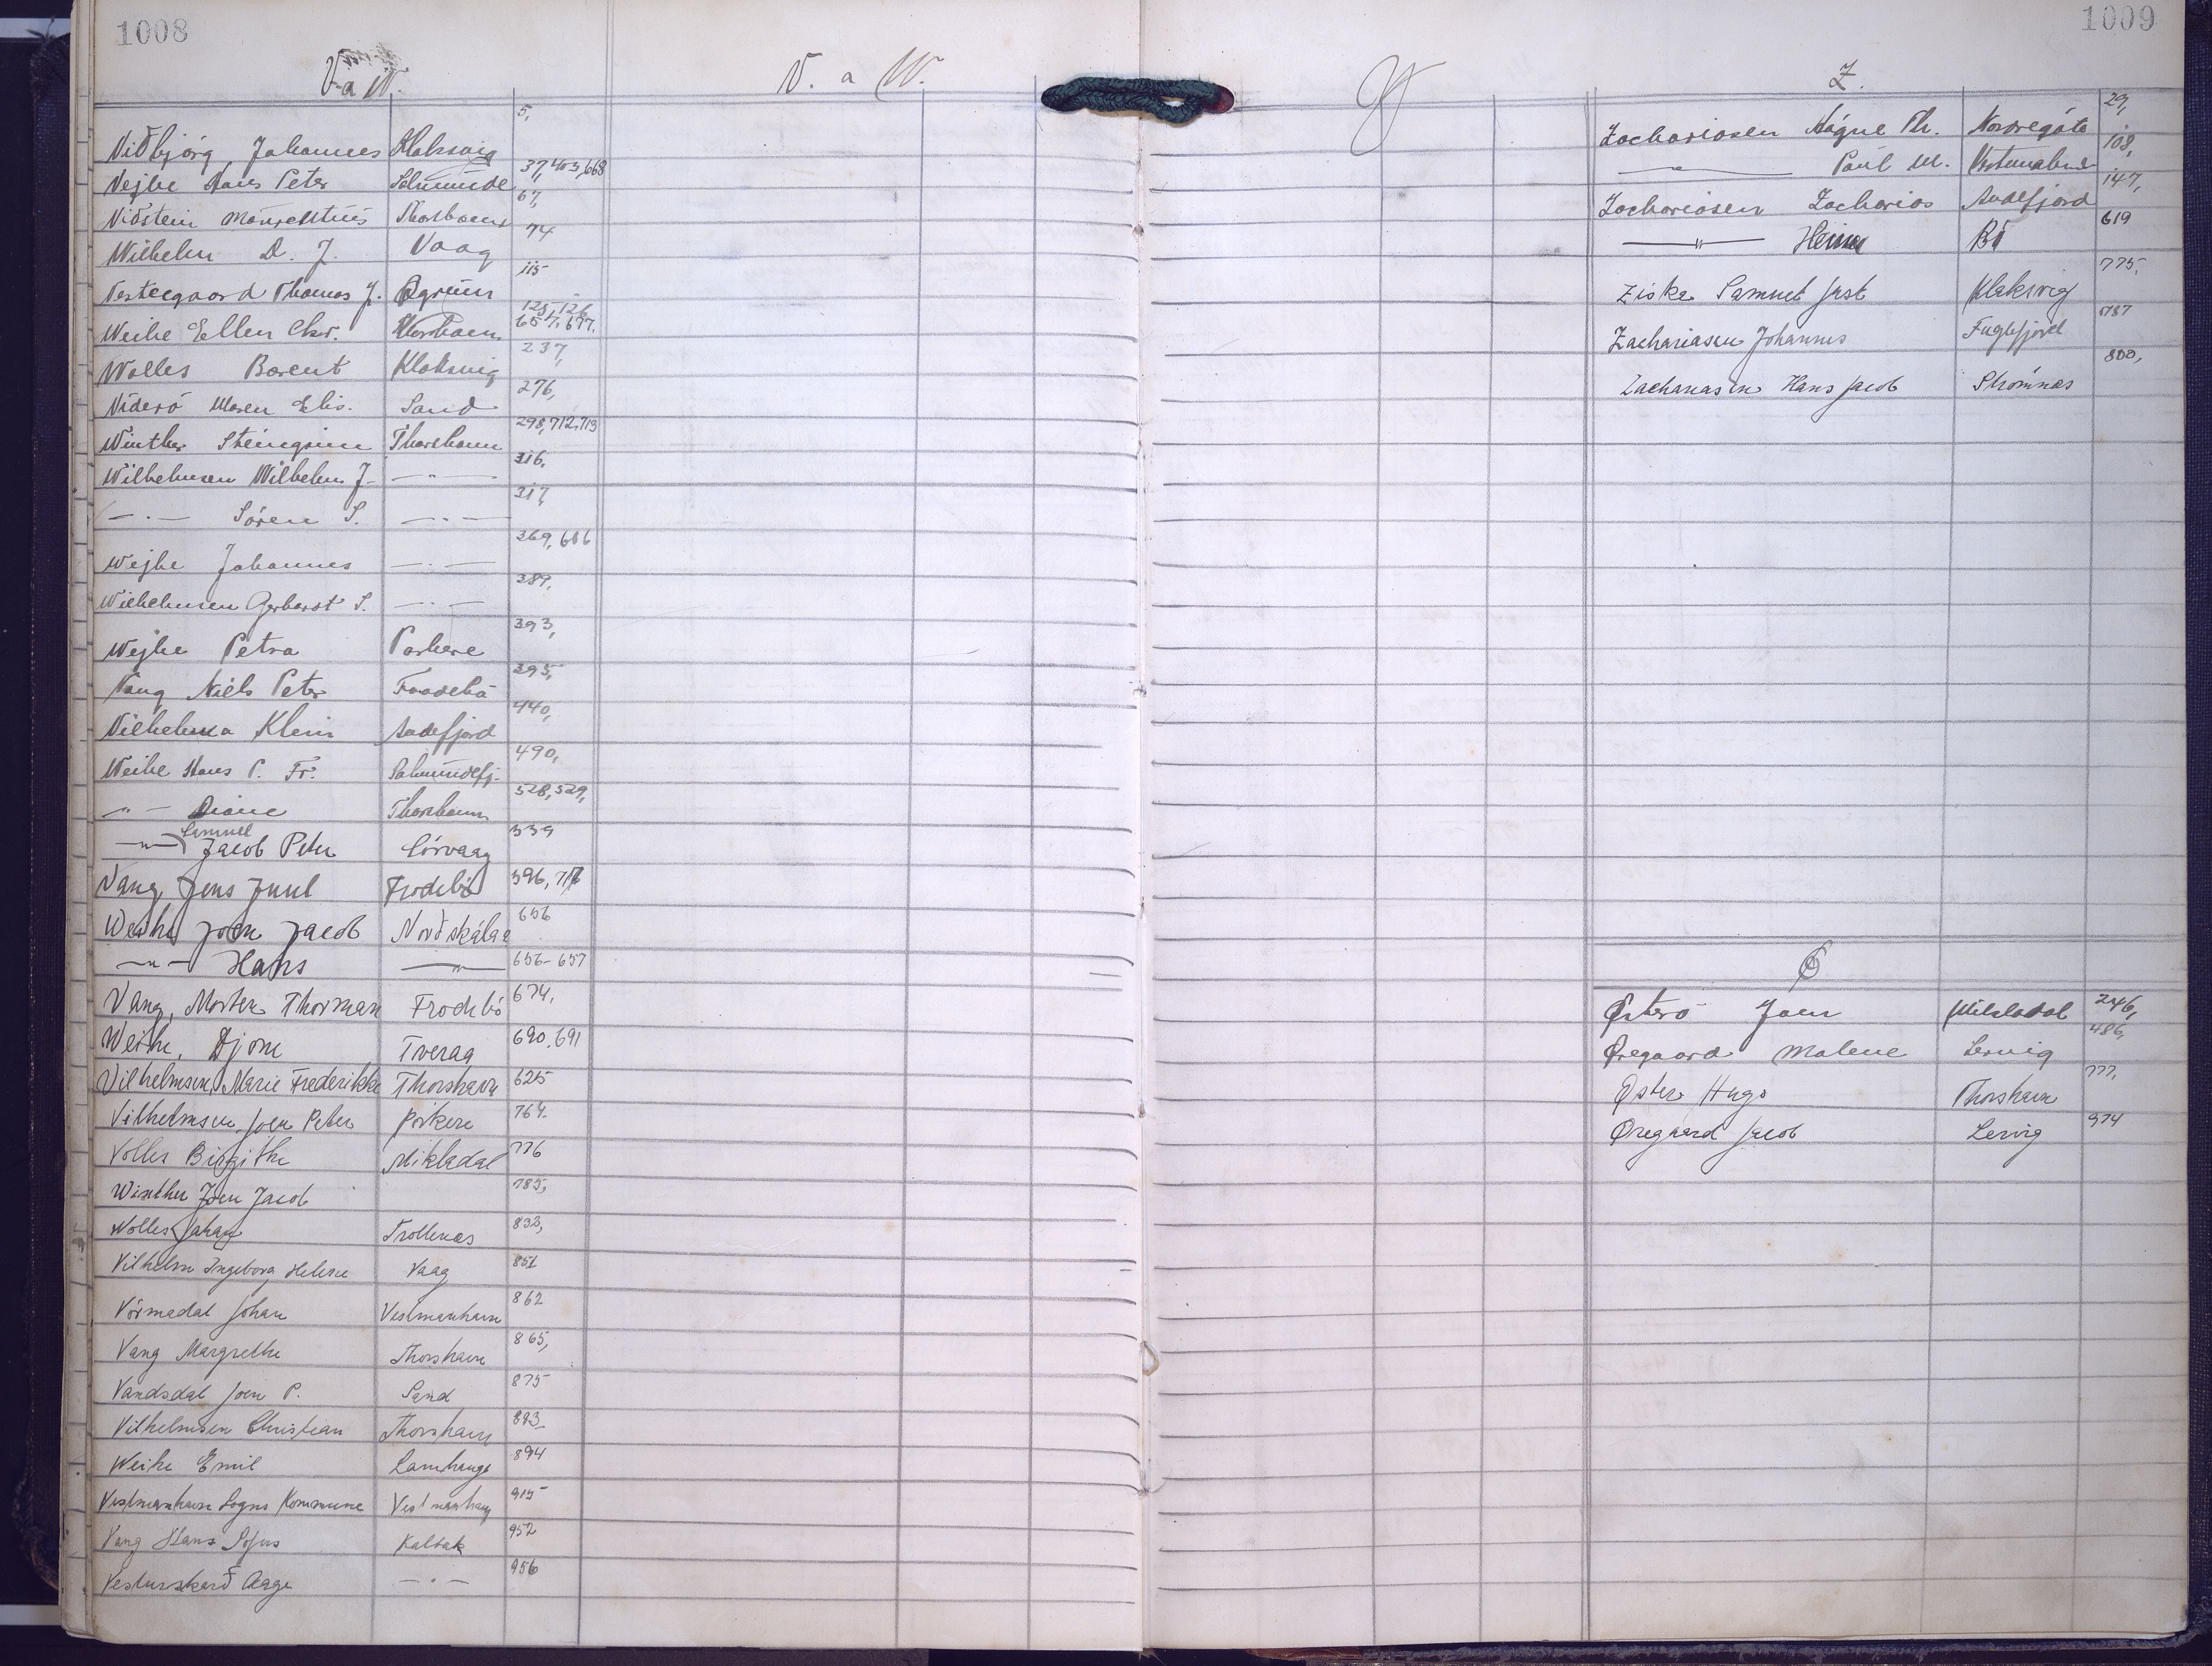 1008
1009
V a W.
V. a W.
Y
Z.
Viðbjørg Johannes Klaksvig 5,
Vejhe Hans Peter Salmunde 37, 403, 668
Viðstein Mourentius Thorshavn 67,
Wilhelm D. J. Vaag 74
Vestergaard Thomas J. 115
Weihe Ellen Chr. Thorshavn 125, 126, 657, 677.
Wolles Barent Klaksvig 237,
Viderö Maren Elis. Sand 276,
Winther Steingrim Thorshavn 298, 712, 713
Wilhelmsen Wilhelm J. — " — 316.
— " — Sören S. — " — 317,
Wejhe Johannes — " — 369, 606
Wilhelmsen Gerhardt S. — " — 389.
Wejhe Petra Porkere 393,
Vang Niels Peter Froodebö 395,
Vilhelmina Klein Andefjord 440,
Weihe Hans P. Fr. Salmundefj. 490,
" — Diane Thorshavn 528, 529,
— " — Samuel Jacob Peter Sörvaag 539
Vang, Jens Juul Frodebö 596, 716
Weihe Joen Jacob Norðskála 656
— " — Hans — " — 656-657
Vang, Morten Thorman Frodebö 674,
Weihe, Djone Tveraa 690, 691
Vilhelmsen, Marie Frederikke Thorshavn 625
Vilhelmsen, Joen Peter Porkere 764.
Volles Birgithe Mikladal 776
Winther Joen Jacob 785,
Wolles Johan Trollenas 832,
Vilhelm Ingeborg Helene Vaag 851
Vörmadal Johan Vestmanhavn 862
Vang Margrethe Thorshavn 865,
Vandsdal Joen P. Sand 875
Vilhelmsen Christian Thorshavn 883
Weihe Emil Lamhauge 894
Vestmanhavn Sogns Kommune Vestmanhavn 915
Vang Hans Sofus Kalbak 952
Vesturskarð Aage — " — 956
Zachariasen Hógne Th. Nordregöta 29,
— " — Poul M. Vestmanhavn 108,
Zachariasen Zacharias Andefjord 147,
— " — Heine Bö 619
Ziska Samuel Just Klaksvig 775,
Zachariasen Johannes Fuglefjord 787
Zachariasen Hans Jacob Strömnæs 800,
Ø
Österö Joen Mikladal 246,
Øregaard Malene Lervig 486,
Øster Hugo Thorshavn 777,
Øregaard Jacob Lervig 974